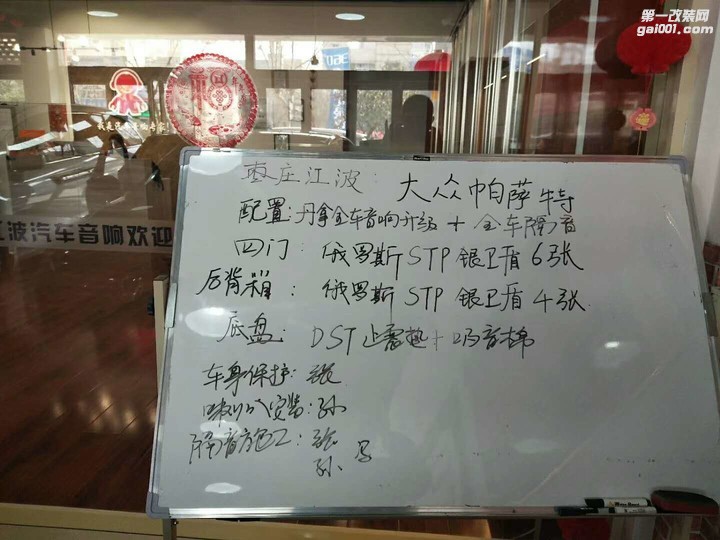 第一改装网
gai001.com
江波汽车音响欢迎
枣庄江波: 大众帕萨特
配置:丹拿全车音响升级+全车隔音
四门: 俄罗斯 STP 银卫盾 6张
后背箱: 俄罗斯 STP 银卫盾 4张
底盘: DST止震垫+吸音棉
车身保护: 张
喇叭安装:孙
隔音施工:张
孙 马